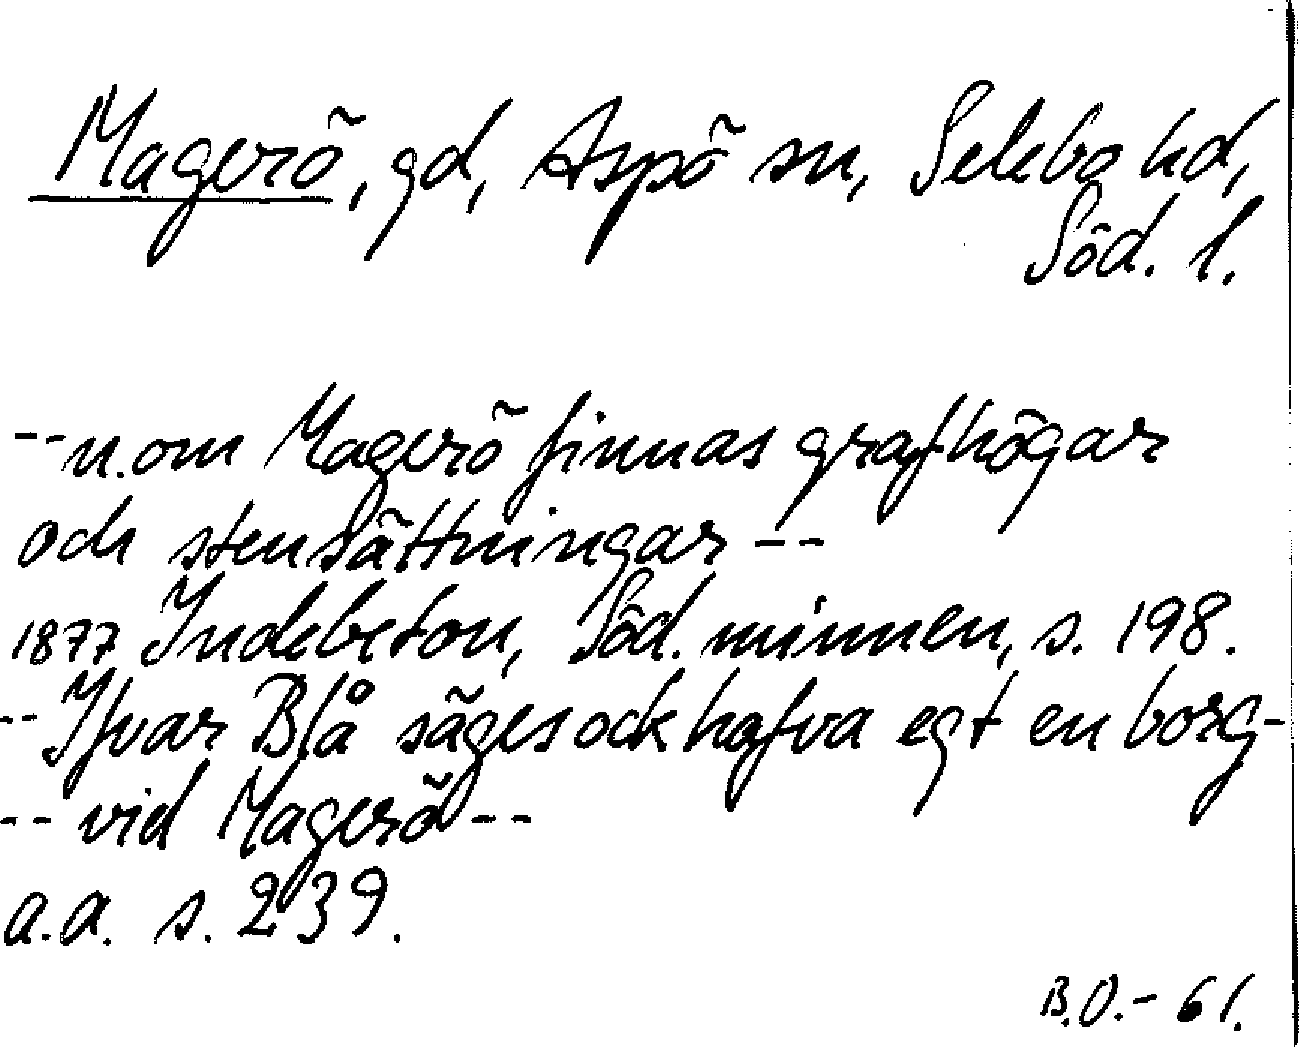 Magerö, gd, Aspö sn, Selebo hd,
Söd. l.
-- n. om Magerö finnas grafhögar
och stensättningar --
1877 Indebetou, Söd. minnen, s. 198.
-- Ifvar Blå säges ock hafva egt en borg -
-- vid Magerö --
a.a. s. 239.
B.O. - 61.